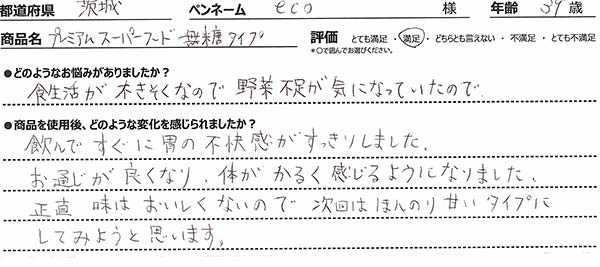 都道府県 茨城 ペンネーム eco 様 年齢 39歳
商品名 プレミアムスーパーフード無糖タイプ 評価 とても満足・満足・どちらとも言えない・不満足・とても不満足
*○で囲んでお選びください。
●どのようなお悩みがありましたか？
食生活が不きそくなので野菜不足が気になっていたので
●商品を使用後、どのような変化を感じられましたか？
飲んですぐに胃の不快感がすっきりしました。
お通じが良くなり、体がかるく感じるようになりました。
正直 味はおいしくないので次回はほんのり甘いタイプに
してみようと思います。